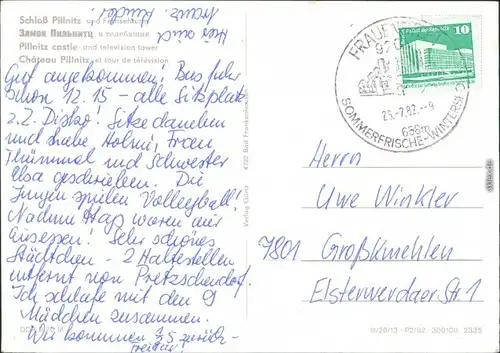 Schloß Pillnitz und Fernsehturm
Замок Пильнитц и телебашня
Pillnitz castle and television tower
Château Pillnitz et tour de télévision
Gut angekommen! Bus fuhr
schon 12.15 – alle Sitzplatz
z.Z. Disko! Sitze daneben
und habe Holmi, Frau
Thümmal und Schwester
Elsa geschrieben. Die
Jungen spielen Volleyball!
Nachm. waren wir
Eisessen! Sehr schönes
Städtchen – 2 Haltestellen
entfernt von Pretzschendorf.
Ich schlafe mit den 9
Mädchen zusammen.
Wir kommen zurück
Freitag!
Verlag Görtz
4732 Bad Frankenhausen
FRAUEN
10
25.-7.82.-9
638m
SOMMERFRISCHE-WINTERS
Herrn
Uwe Winkler
7801 Großkmehlen
Elsterwerdaer Str. 1
DDR M
P2/82 300100 2335